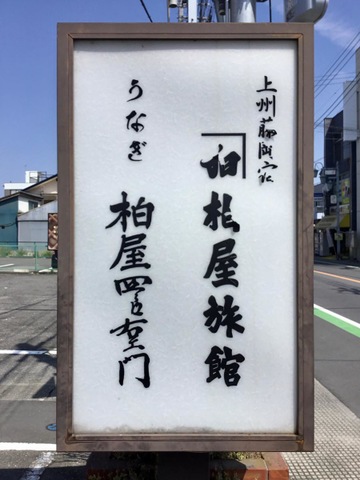 上州藤岡宿
札屋旅館
うなぎ
柏屋四良右エ門